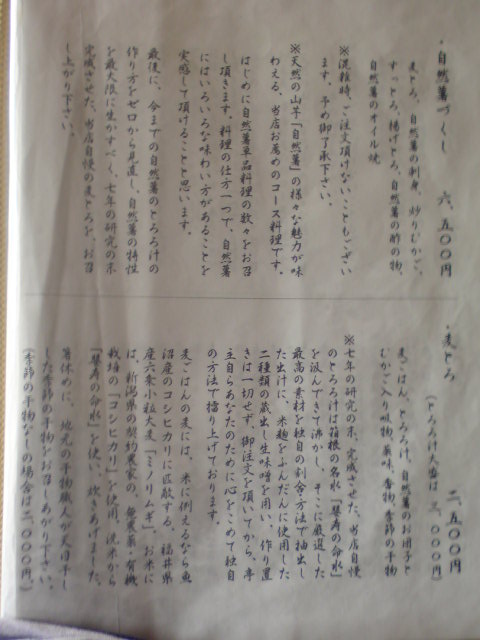 ・自然薯づくし　六、五〇〇円
麦とろ、自然薯の刺身、炒りむかご、
すっとろ、揚げとろ、自然薯の酢の物、
自然薯のオイル焼
※混雑時、ご注文頂けないこともござい
ます。予め御了承下さい。
※天然の山芋「自然薯」の様々な魅力が味
わえる、当店お薦めのコース料理です。
はじめに自然薯単品料理の数々をお召
し頂きます。料理の仕方一つで、自然薯
にはいろいろな味わい方があることを
実感して頂けることと思います。
最後に、今までの自然薯のとろろ汁の
作り方をゼロから見直し、自然薯の特性
を最大限に生かすべく、七年の研究の末
完成させた、当店自慢の麦とろを、お召
し上がり下さい。
・麦とろ　二、五〇〇円
（とろろ汁大盛は三、〇〇〇円）
麦ごはん、とろろ汁、自然薯のお団子と
むかご入り吸物、薬味、香物、季節の干物
※七年の研究の末、完成させた、当店自慢
のとろろ汁は箱根の名水「琴寿の命水」
を汲んできて沸かし、そこに厳選した
最高の素材を独自の割合・方法で抽出し
た出汁に、米麹をふんだんに使用した
二種類の蔵出し生味噌を用い、作り置
きは一切せず、御注文を頂いてから、亭
主自らあなたのために心をこめて独自
の方法で擂り上げております。
麦ごはんの麦には、米に例えるなら魚
沼産のコシヒカリに匹敵する、福井県
産六条小粒大麦「ミノリムギ」、お米に
は、新潟県の契約農家の、無農薬・有機
栽培の「コシヒカリ」を使用。洗米から
「琴寿の命水」を使い、炊きあげました。
箸休めに、地元の干物職人が天日干し
した季節の干物をお召しあがり下さい。
（季節の干物なしの場合は二、〇〇〇円。）